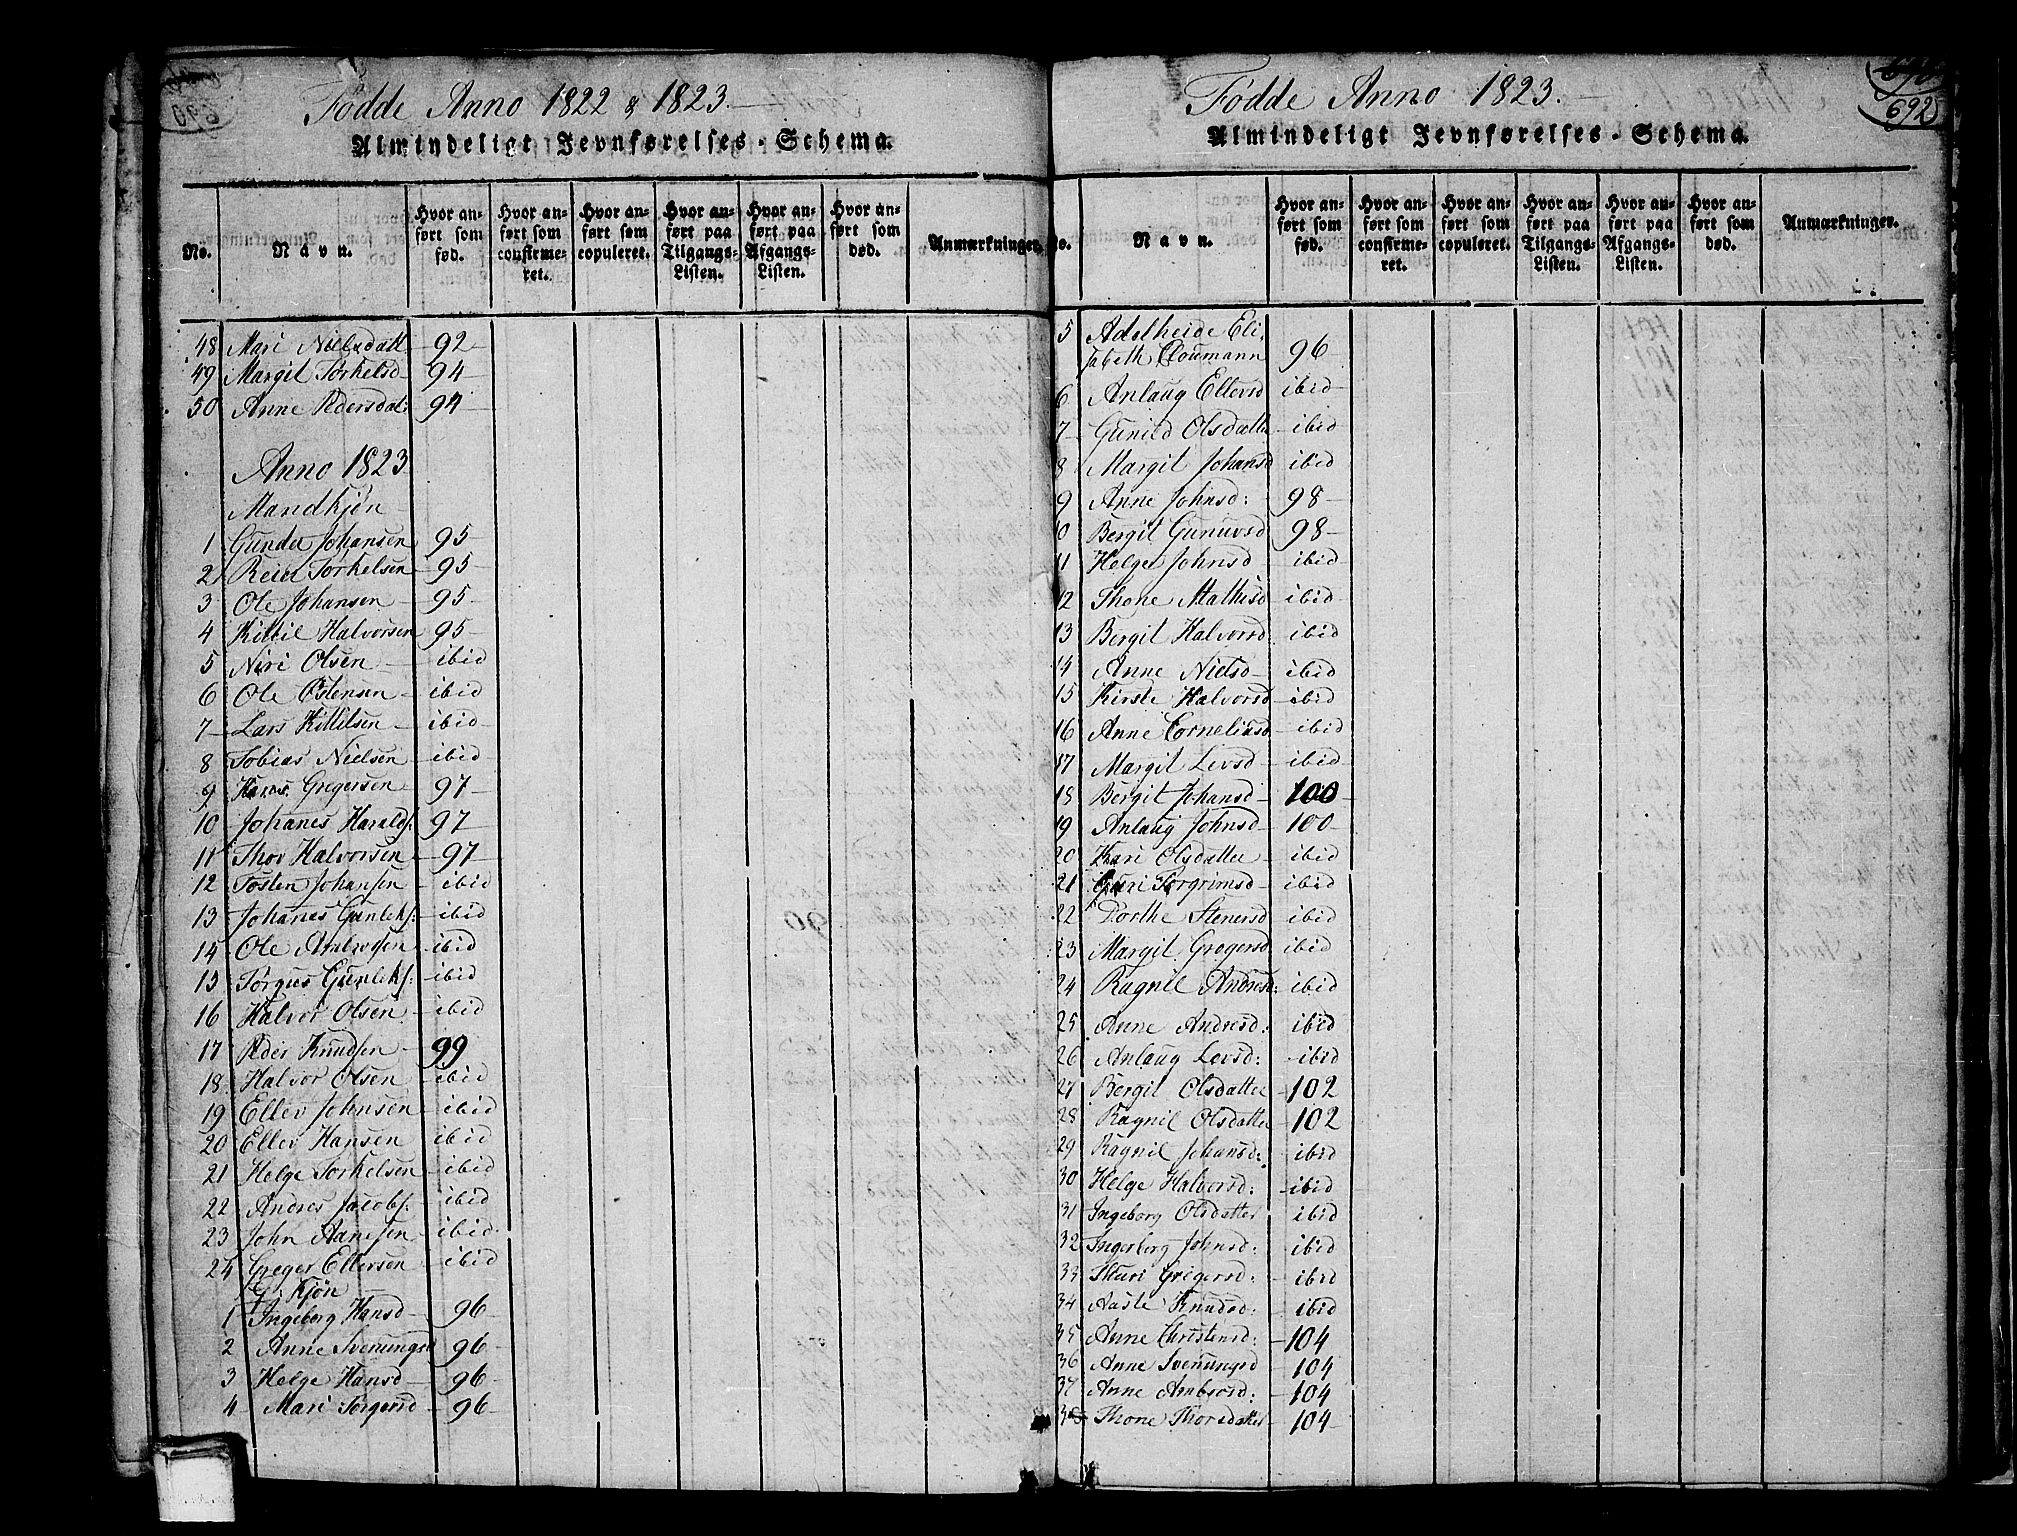 Fødde Anno 1822 & 1823.
Almindeligt Jevnførelses-Schema.
No. Navn. Hvor anført som fød. Hvor anført som confirmeret. Hvor anført som copuleret. Hvor anført paa Tilgangs-Listen. Hvor anført paa Afgangs-Listen. Hvor anført som død. Anmærkninger
48 Mari Nielsdatt 92
49 Margit Torkelsd 94
50 Anne Pedersdat: 94
Anno 1823
Mandkjøn
1 Gunder Johansen 95
2 Reier Torkelsen 95
3 Ole Johansen 95
4 Kittil Halvorsen 95
5 Niri Olsen ibid
6 Ole Østensen ibid
7 Lars Kittilsen ibid
8 Tobias Nielsen ibid
9 Hans Gregersen 97
10 Johanes Haralds: 97
11 Thov Halvorsen 97
12 Tosten Johansen ibid
13 Johanes Gunleks: ibid
14 Ole Ambrosen ibid
15 Torgus Gunleks: ibid
16 Halvor Olsen ibid
17 Peder Knudsen 99
18 Halvor Olsen ibid
19 Ellev Johnsen ibid
20 Ellev Hansen ibid
21 Helge Torkelsen ibid
22 Andres Jacobs: ibid
23 John Aanesen ibid
24 Greger Ellevsen ibid
Q: Kjøn
1 Ingeborg Hansd 96
2 Anne Svenungsd 96
3 Helge Hansd 96
4 Mari Torgersd 96
Fødde Anno 1823.
692
Almindeligt Jevnførelses-Schema.
No. Navn. Hvor anført som fød. Hvor anført som confirmeret. Hvor anført som copuleret. Hvor anført paa Tilgangs-Listen. Hvor anført paa Afgangs-Listen. Hvor anført som død. Anmærkninger.
5 Adelheide Eli:
sabeth Cloumann 96
6 Anlaug Ellevsd ibid
7 Gunild Olsdatter ibid
8 Margit Johansd ibid
9 Anne Johnsd: 98
10 Bergit Gunuvsd 98
11 Helge Johnsd ibid
12 Thone Mathisd ibid
13 Bergit Halvorsd ibid
14 Anne Nielsd ibid
15 Kirste Halvorsd ibid
16 Anne Corneliusd ibid
17 Margit Levsd ibid
18 Bergit Johansd 100
19 Anlaug Johnsd 100
20 Kari Olsdatter ibid
21 Guri Torgrimsd ibid
22 Dorthe Stenersd ibid
23 Margit Gregersd ibid
24 Ragnil Andresd: ibid
25 Anne Andresd: ibid
26 Anlaug Levsd: ibid
27 Bergit Olsdatter 102
28 Ragnil Olsdatter 102
29 Ragnil Johansd: ibid
30 Helge Halvorsd: ibid
31 Ingeborg Olsdatter ibid
32 Ingerborg Johnsd: ibid
33 Sturi Grigersd: ibid
34 Aaste Knudsd: ibid
35 Anne Christensd: 104
36 Anne Svenungsd 104
37 Anne Ambrosd: 104
38 Thone Thorsdatter 104